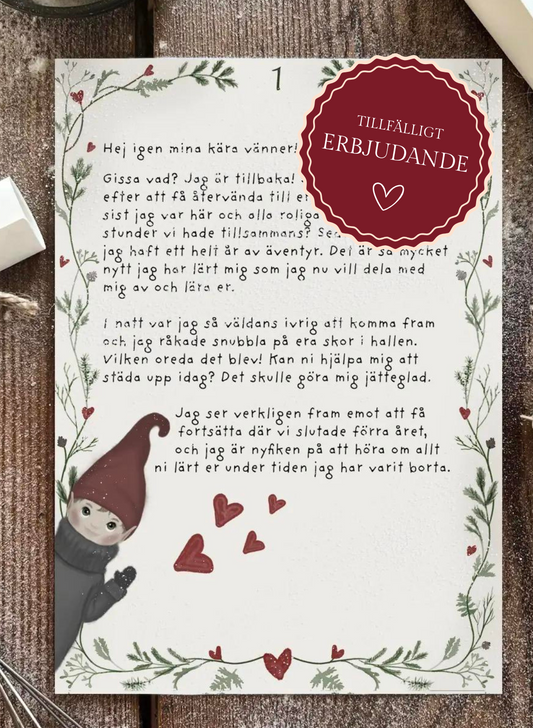 1
TILLFÄLLIGT
ERBJUDANDE
Hej igen mina kära vänner!
Gissa vad? Jag är tillbaka!
efter att få återvända till er
sist jag var här och alla roliga
stunder vi hade tillsammans?
jag haft ett helt år av äventyr. Det är så mycket
nytt jag har lärt mig som jag nu vill dela med
mig av och lära er.
I natt var jag så väldans ivrig att komma fram
och jag råkade snubbla på era skor i hallen.
Vilken oreda det blev! Kan ni hjälpa mig att
städa upp idag? Det skulle göra mig jätteglad.
Jag ser verkligen fram emot att få
fortsätta där vi slutade förra året,
och jag är nyfiken på att höra om allt
ni lärt er under tiden jag har varit borta.